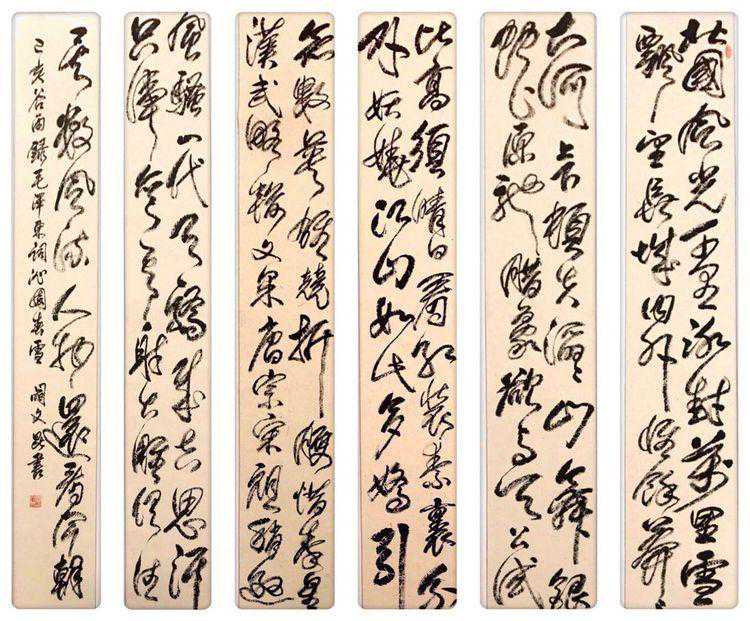 北國風光千里冰封萬里雪
飄望長城內外惟餘莽莽
大河上下頓失滔滔山舞銀
蛇原馳臘象欲與天公試
比高須晴日看紅裝素裹分
外妖嬈江山如此多嬌引
無數英雄競折腰惜秦皇
漢武略輸文采唐宗宋祖稍遜
風騷一代天驕成吉思汗
只識彎弓射大雕俱往
矣數風流人物還看今朝
己亥谷雨錄毛澤東詞沁園春雪 文書